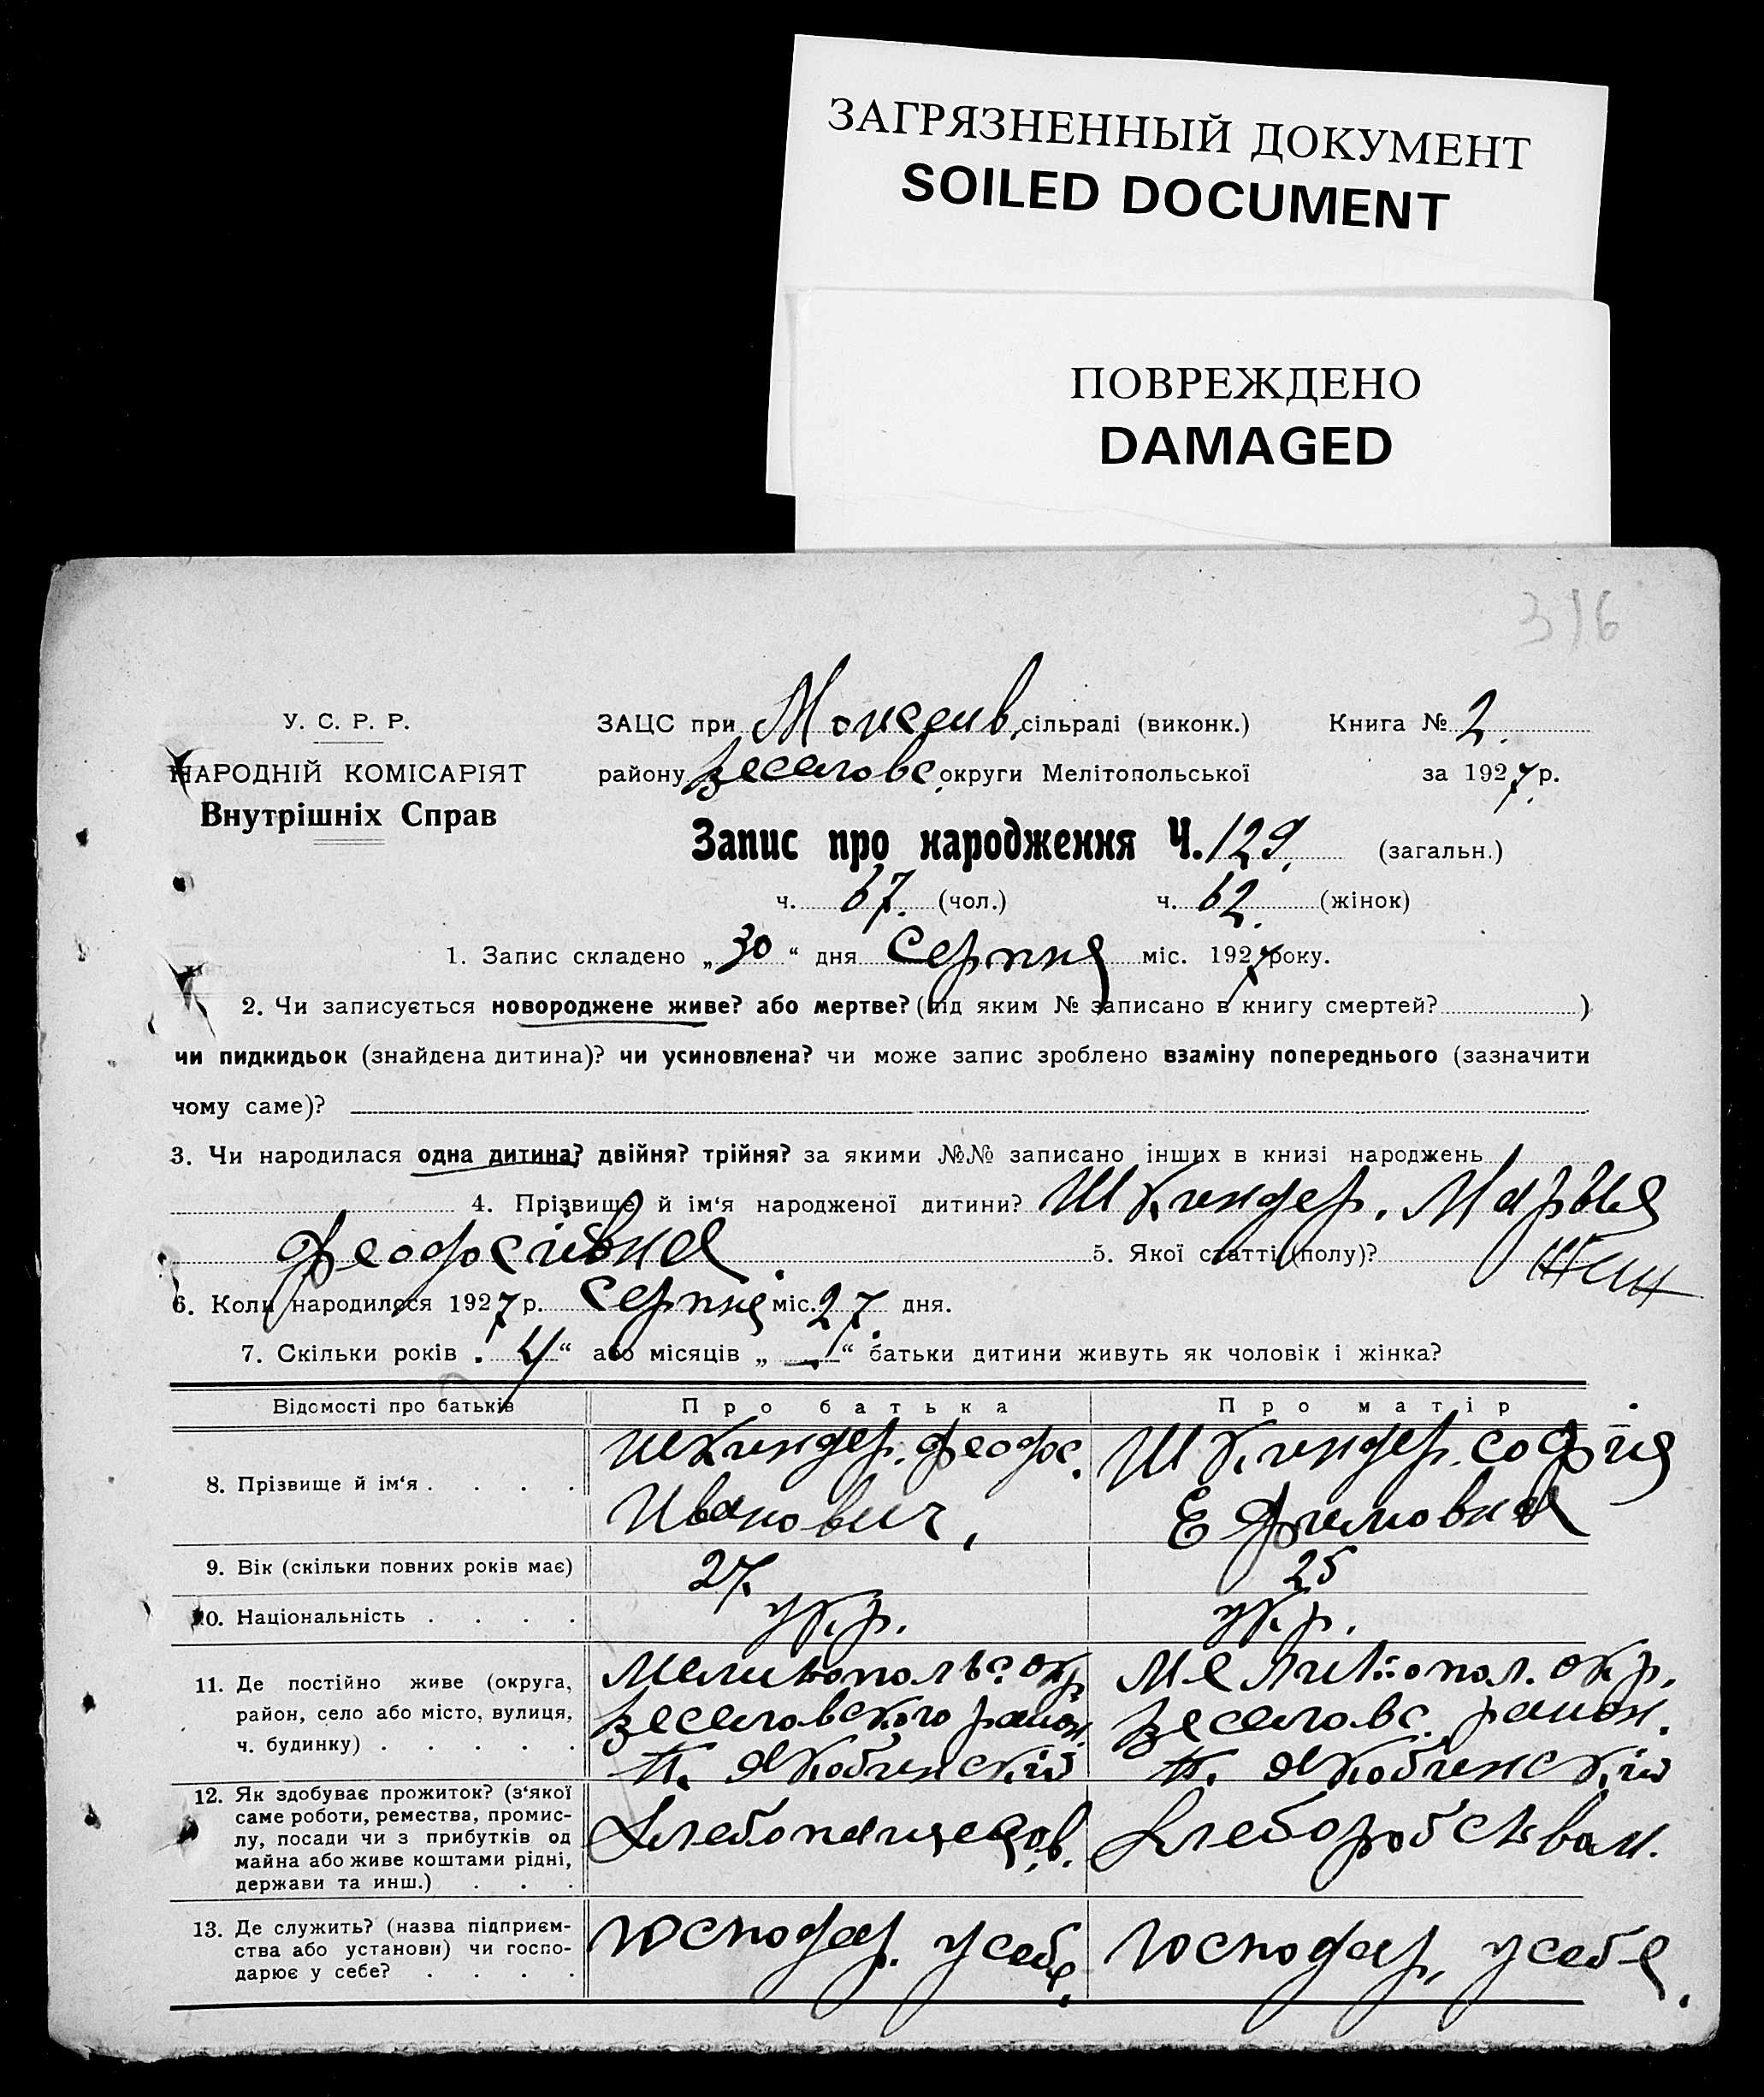 ЗАГРЯЗНЕННЫЙ ДОКУМЕНТ
SOILED DOCUMENT
ПОВРЕЖДЕНО
DAMAGED
316
У. С. Р. Р.
НАРОДНІЙ КОМІСАРІЯТ
Внутрішніх Справ
ЗАЦС при сільраді (виконк.) Книга № 2.
району Веселовс. округи Мелітопольської за 1927 р.
Запис про народження Ч. 129. (загальн.)
ч. 67. (чол.) ч. 62. (жінок)
1. Запис складено „30“ дня Серпня міс. 1927 року.
2. Чи записується новороджене живе? або мертве? (під яким № записано в книгу смертей? )
чи пидкидьок (знайдена дитина)? чи усиновлена? чи може запис зроблено взаміну попереднього (зазначити
чому саме)?
3. Чи народилася одна дитина? двійня? трійня? за якими №№ записано інших в книзі народжень
4. Прізвище й ім‘я народженої дитини? Шкиндер. Марыя
Феофосіївна. 5. Якої статті (полу)? жен
6. Коли народилося 1927 р. Серпня міс. 27. дня.
7. Скільки років „4“ або місяців „—“ батьки дитини живуть як чоловік і жінка?
Відомості про батьків Про батька Про матір
8. Прізвище й ім‘я . . . . Шкиндер. Феофос. Иванович, Шкиндер. София Ефимовна
9. Вік (скільки повних років має) 27. 25
10. Національність . . . . укр. укр.
11. Де постійно живе (округа, Мелитопольс. окр. Мелитопол. окр.
район, село або місто, вулиця, Веселовского район. Веселовс. район.
ч. будинку) . . . . . Якобинский Якобинский
12. Як здобуває прожиток? (з‘якої
саме роботи, ремества, промис-
лу, посади чи з прибутків од Хлебопашеств. Хлеборобством.
майна або живе коштами рідні,
держави та инш.) . . .
13. Де служить? (назва підприєм-
ства або установи) чи госпо- Господар. у себе. Господар. у себе.
дарює у себе? . . . .